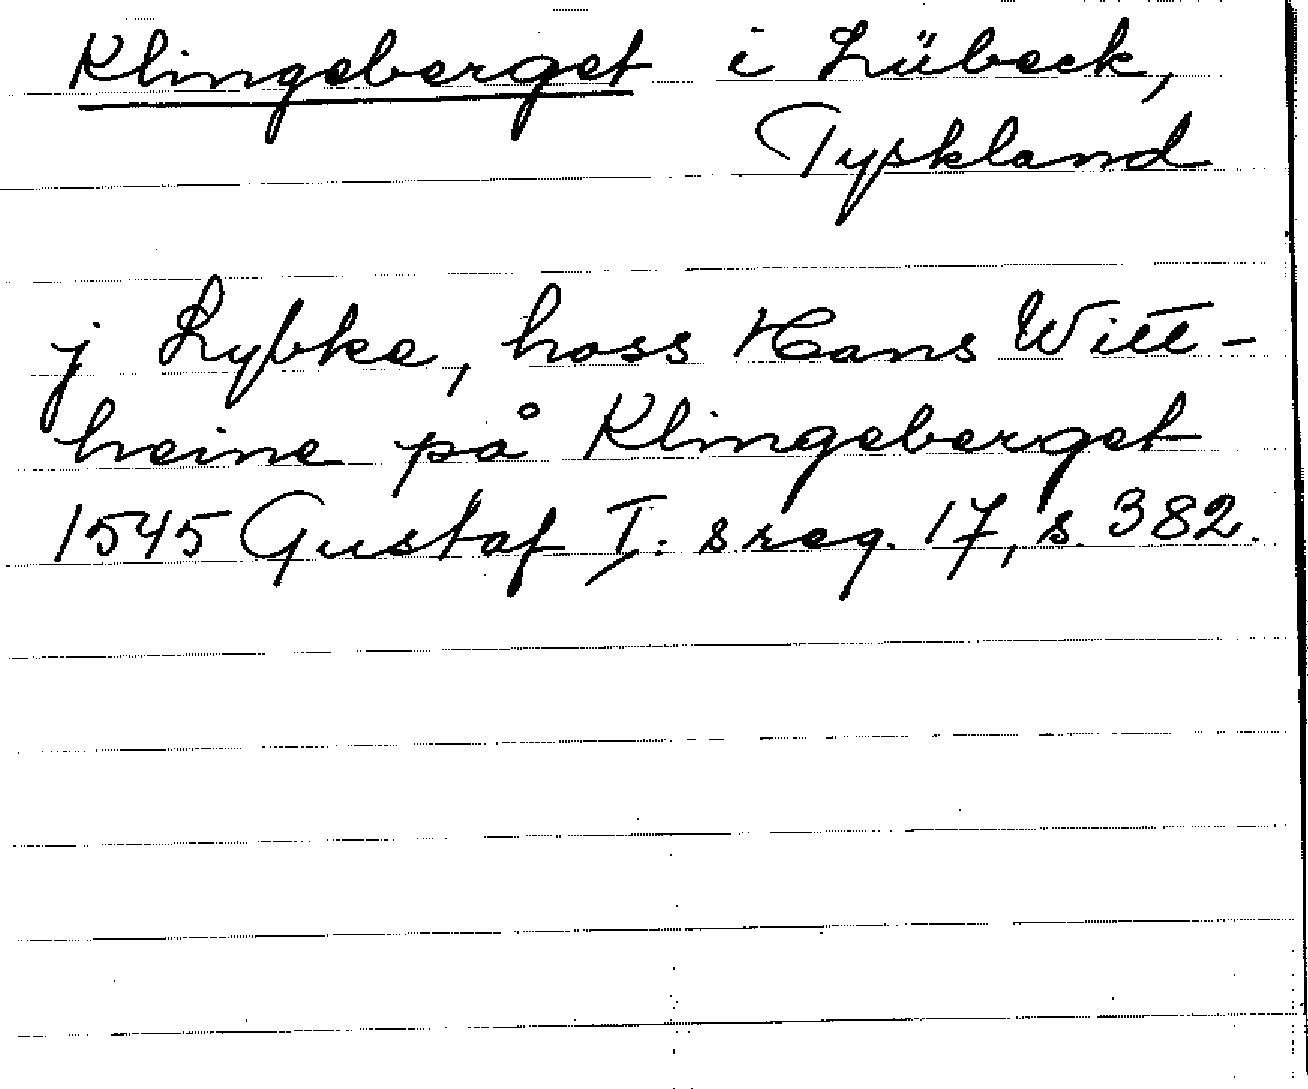 Klingeberget i Lübeck,
Tyskland
j Lybke, hoss Hans Witt-
heine på Klingeberget
1545 Gustaf I:s reg. 17, s. 382.